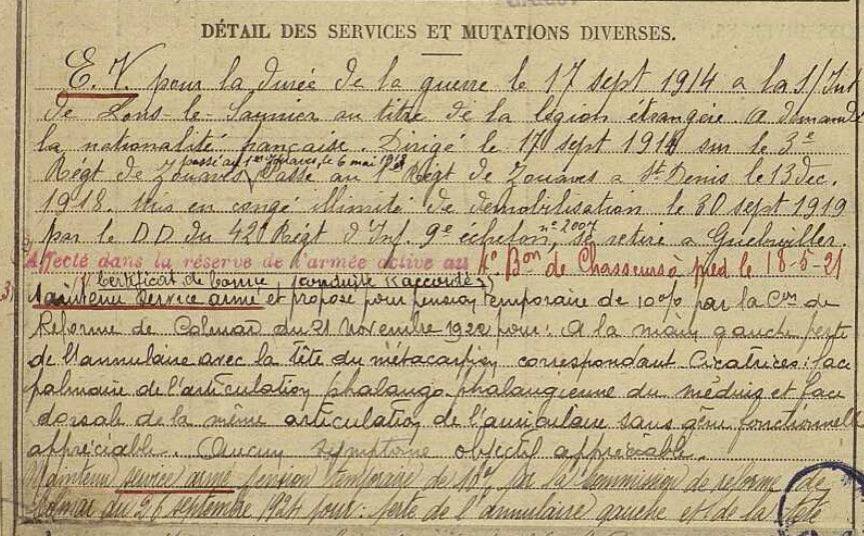 DÉTAIL DES SERVICES ET MUTATIONS DIVERSES.
E.V. pour la durée de la guerre le 17 sept 1914 a la S/Int
de Lons-le-Saunier au titre de la légion étrangère. A demandé
la nationalité française. Dirigé le 17 sept 1914 sur le 3e
passé au 1er Zouaves, le 6 mai 1918
Régt de Zouaves. Passé au 1er Régt de Zouaves a St Denis le 13 dec.
1918. Mis en congé illimité de démobilisation le 30 sept 1919
par le D D du 42e Régt d'Inf. 9e échelon, n° 2007 se retire a Guebwiller.
Affecté dans la réserve de l'armée active au 4e Bon de Chasseurs à pied le 18-5-21
Certificat de bonne conduite "Accordé"
3) Maintenu Service armé et proposé pour pension temporaire de 10% par la Con de
Réforme de Colmar du 21 Novembre pour: A la main gauche perte
de l'annulaire avec la tête du métacarpien correspondant. Cicatrices: face
palmaire de l'articulation phalango phalangienne du médius et face
dorsale de la même articulation de l'auriculaire sans gêne fonctionnelle
appréciable. Aucun symptome objectif appréciable.
Maintenu service armé pension temporaire de 10% par la Commission de réforme de
Colmar du 26 septembre 1924 pour: perte de l'annulaire gauche et de la tête